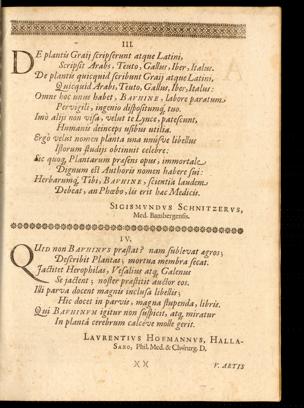 III.
DE plantis Graij scripserunt atque Latini,
Scripsit Arabs, Teuto, Gallus, Iber, Italus.
De plantis quicquid scribunt Graij atque Latini,
Quicquid Arabs, Teuto, Gallus, Iber, Italus:
Omne hoc unus habet, BAVHINE, labore paratum
Pervigili, ingenio dispositumq; tuo.
Imò alijs non visa, velut te Lynce, patescunt,
Humanis deinceps usibus utilia.
Ergò velut nomen planta una
Istorum studijs obtinuit celebre:
Sic quoq; Plantarum præsens opus, immortale
Dignum est Authoris nomen habere sui:
Herbarumq; Tibi, BAVHINE, scientia laudem
Debeat, an Phœbo, lis erit hac Medicis.
SIGISMVNDVS SCHNITZERVS,
Med. Bambergensis.
IV.
QUID non BAVHINVS præstat? nam sublevat agros;
Describit Plantas; mortua membra secat.
Jactitet Herophilas, Vesalius atq; Galenus
Se jactent; noster præstitit auctor eos.
Illi parva docent magnis inclusa libellis;
Hic docet in parvis, magna stupenda, libris.
Qui BAVHINVM igitur non suspicit, atq; miratur
In planta cerebrum calceve molle gerit.
LAVRENTIVS HOFMANNVS, HALLA-
SAXO, Phil. Med. & Chirurg. D.
XX
V. ARTIS